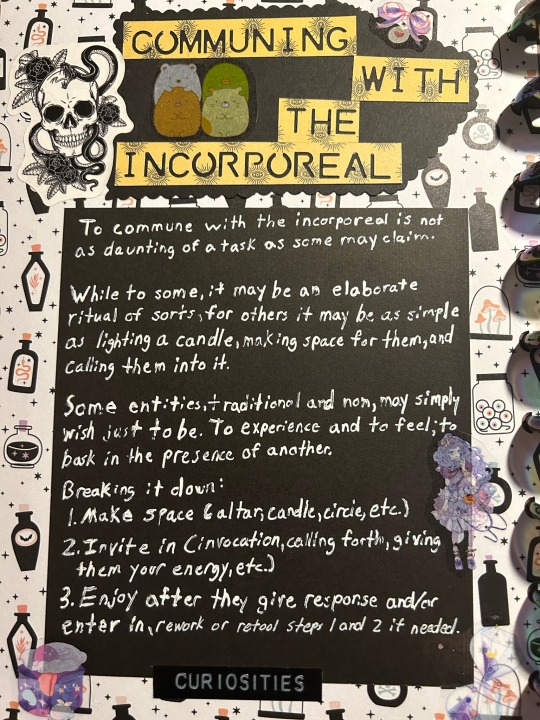 COMMUNING
WITH
THE
INCORPOREAL
To commune with the incorporeal is not
as daunting of a task as some may claim.
While to some, it may be an elaborate
ritual of sorts, for others it may be as simple
as lighting a candle, making space for them, and
calling them into it.
Some entities, traditional and non, may simply
wish just to be. To experience and to feel; to
bask in the presence of another.
Breaking it down:
1. Make space (altar, candle, circle, etc.)
2. Invite in (invocation, calling forth, giving
them your energy, etc.)
3. Enjoy after they give response and/or
enter in, rework or retool steps 1 and 2 if needed.
CURIOSITIES